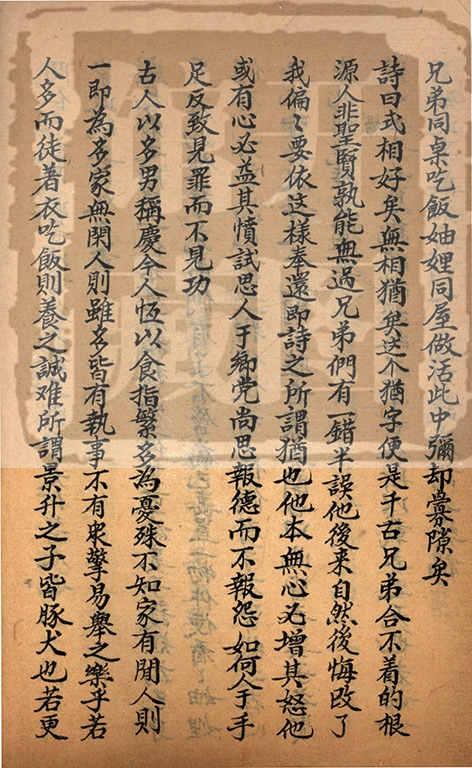 兄弟同桌吃飯妯娌同屋做活此中彌却釁隙矣
詩曰式相好矣無相猶矣这个猶字便是千古兄弟合不着的根
源人非聖賢孰能無過兄弟們有一錯半誤他後来自然後悔改了
我偏〻要依这樣奉還即詩之所謂猶也他本無心必增其怒他
或有心必益其憤試思人于鄉党尚思報德而不報怨如何人于手
足反致見罪而不見功
古人以多男稱慶今人恆以食指繁多為憂殊不知家有閒人則
一即為多家無閑人則雖多皆有執事不有眾擎易舉之樂乎若
人多而徒著衣吃飯則養之誠难所謂景升之子皆豚犬也若更